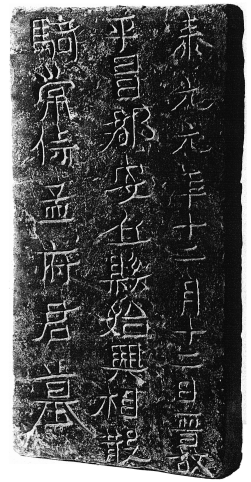 泰元元年十二月十二日晉故
平昌郡安丘縣始興相散
騎常侍孟府君墓